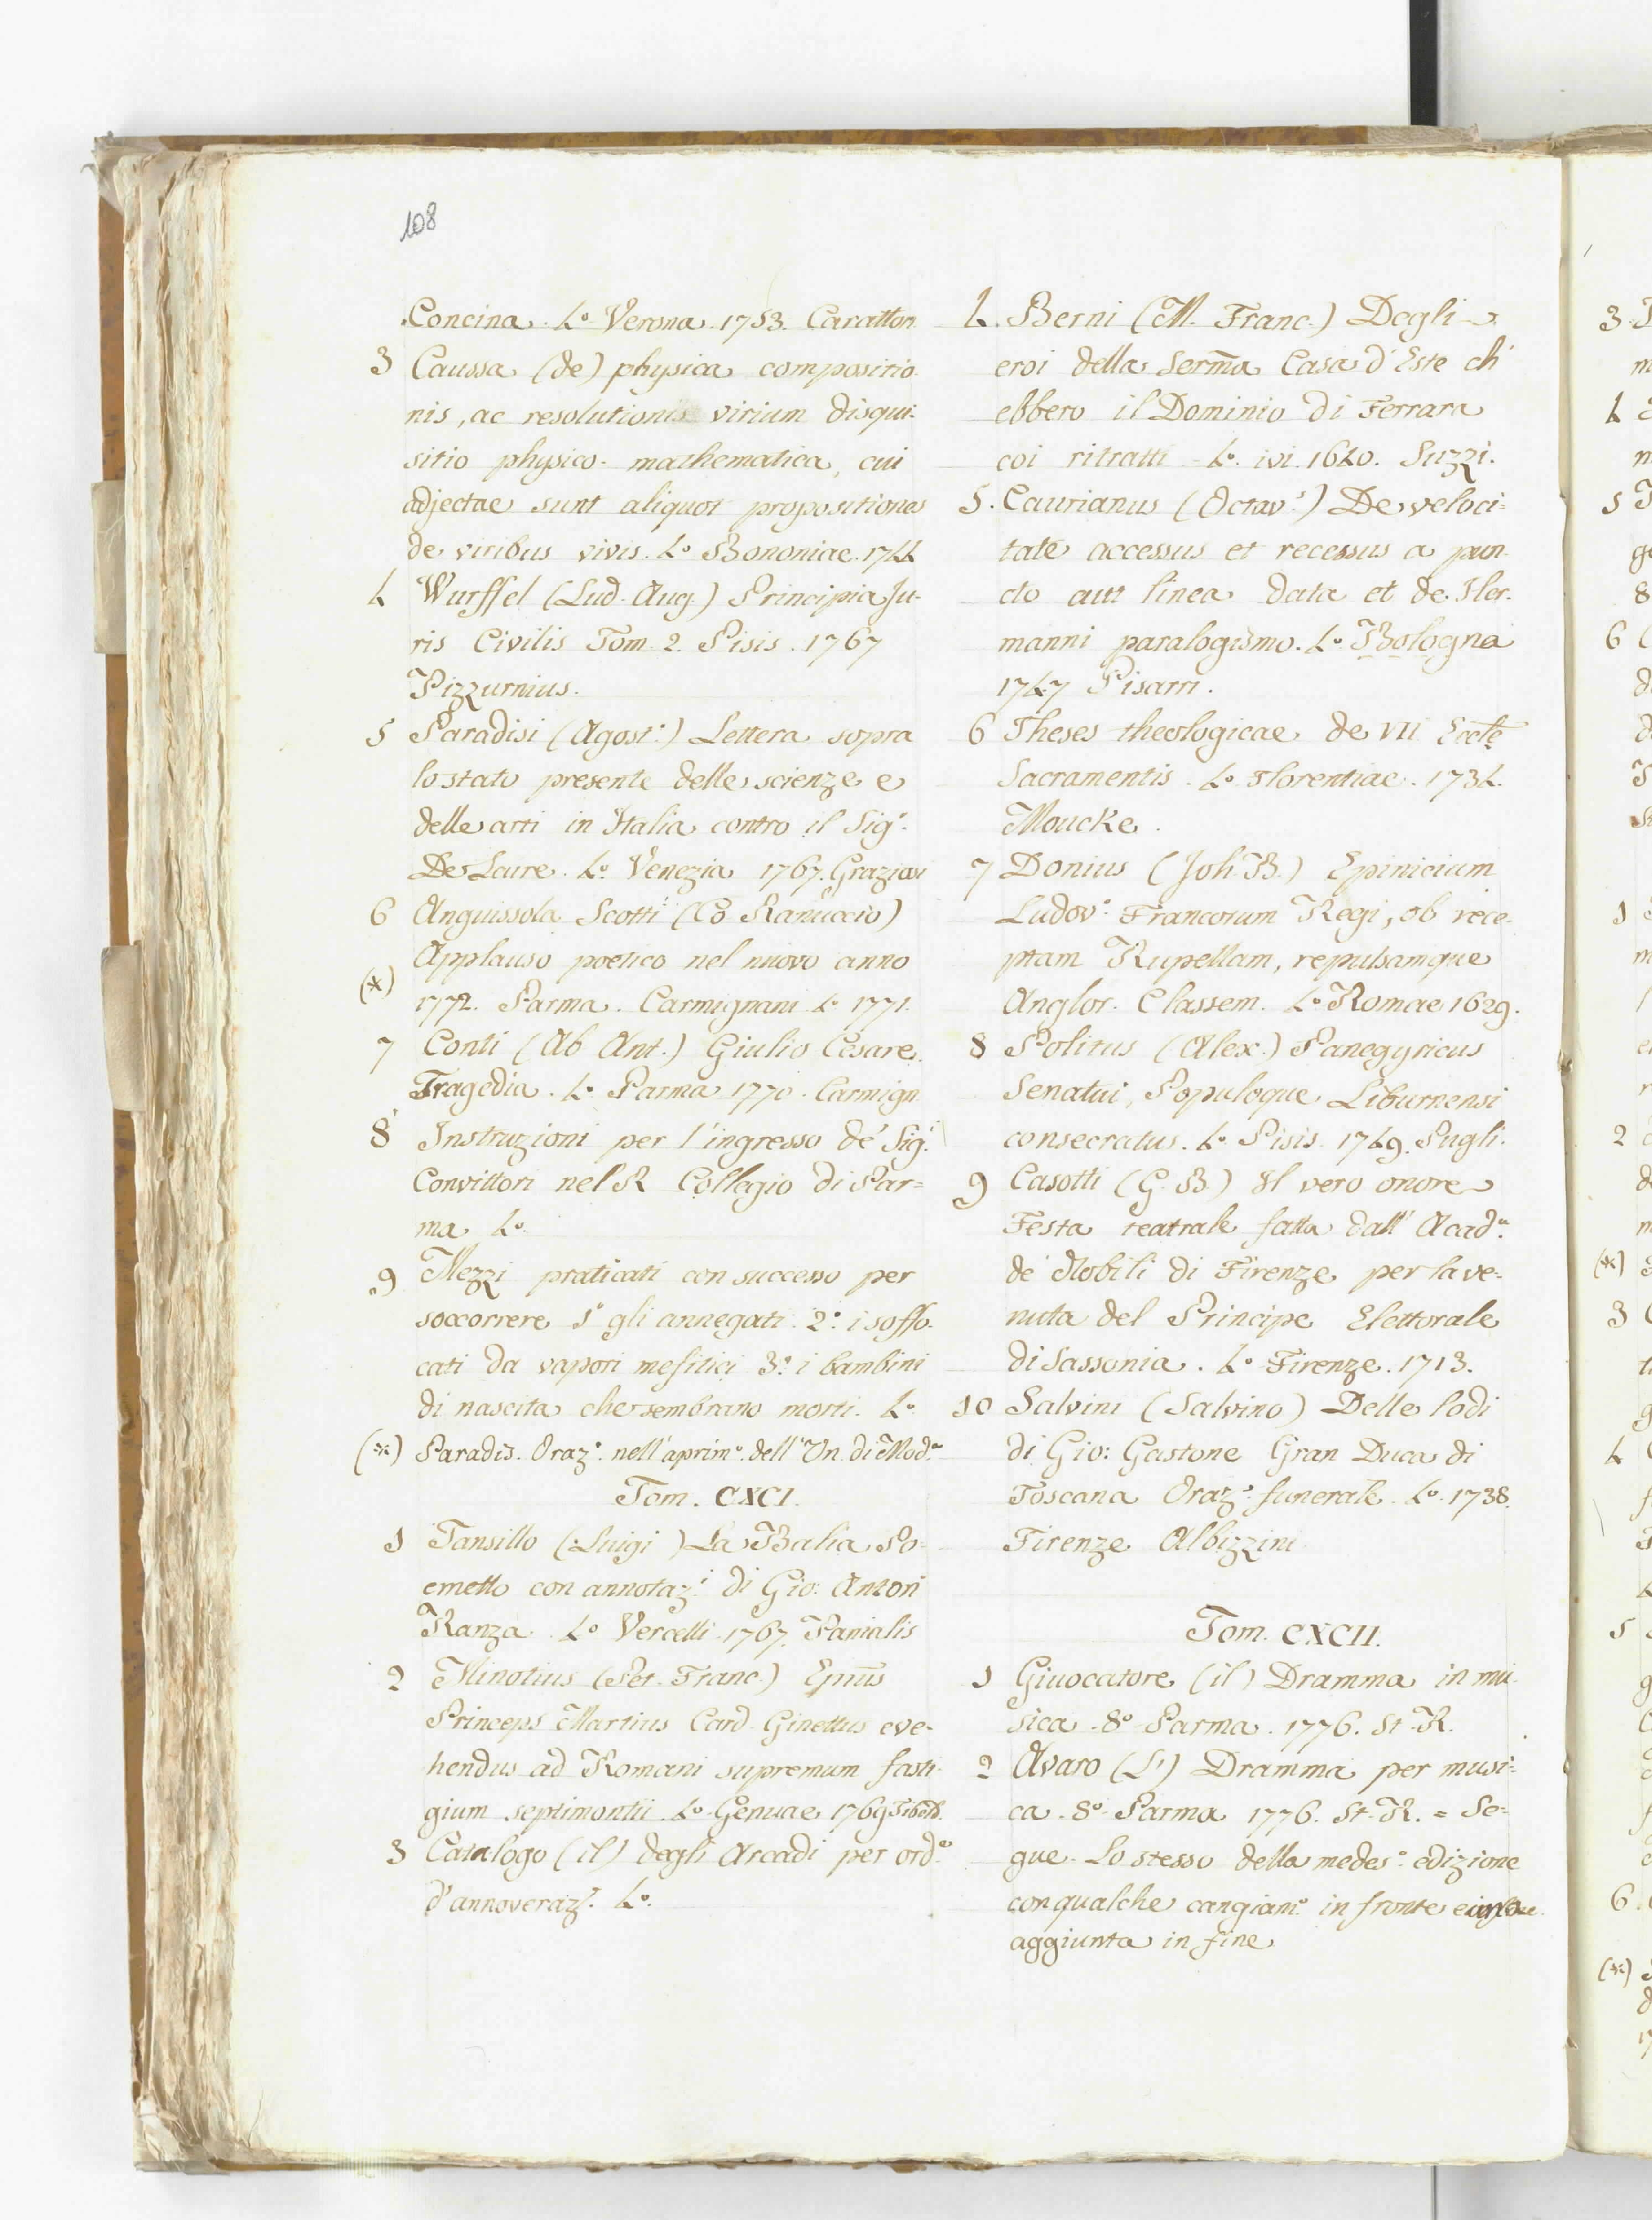 108
Concina. 4º Verona. 1753. Carattoni
3 Caussa (de) physica compositio-
nis, ac resolutionis virium disqui-
sitio physico-mathematica, cui
adjectae sunt aliquot propositiones
de viribus vivis. 4º Bononiae. 1744
4 Wurffel (Lud. Aug.) Principia Ju-
ris Civilis Tom. 2. Pisis. 1767
Pizzurnius.
5 Paradisi (Agost.º) Lettera sopra
lo stato presente delle scienze e
delle arti in Italia contro il Sig.r
De Laire. 4º Venezia 1767. Graziosi
6 Anguissola Scotti (Co Ranuccio)
Applauso poetico nel nuovo anno
(*) 1772. Parma. Carmignani 4º 1771.
7 Conti (Ab Ant.) Giulio Cesare.
Tragedia. 4º Parma 1770. Carmign.
8 Instruzioni per l'ingresso de' Sig.i
Convittori nel R Collegio di Par=
ma 4º
9 Mezzi praticati con successo per
soccorrere 1º gli annegati. 2º. i soffo-
cati da vapori mefitici 3º. i bambini
di nascita che sembrano morti. 4º
(*) Paradis. Oraz.e nell'aprim.º dell'Un. di Mod.a
Tom. CXCI.
1 Tansillo (Luigi) La Balia Po-
emetto con annotaz.i di Gio: Anton
Ranza. 4º Vercelli. 1767. Panialis
2 Minotius (Pet. Franc.) Emus
Princeps Martius Card. Ginettus eve-
hendus ad Romani supremum fasti-
gium septimontii 4º Genuae 1769
3 Catalogo (il) degli Arcadi per ord.e
d'annoveraz.e 4º.
4. Berni (M. Franc.) Degli
eroi della Serma Casa d'Este ch'
ebbero il Dominio di Ferrara
coi ritratti 4º. ivi 1640. Suzzi.
5. Caurianus (Octav.s) De veloci=
tate accessus et recessus a pun-
cto aut linea data et de Her-
manni paralogismo. 4º Bologna
1747 Pisarri.
6 Theses theologicae de VII Eccle
Sacramentis. 4º Florentiae. 1734.
Moucke.
7 Donius (Joh. B.) Epinicium
Ludov.º Francorum Regi, ob rece-
ptam Rupellam, repulsamque
Anglor. Classem. 4º Romae 1629.
8 Politus (Alex.) Panegyricus
Senatui, Populoque Liburnensi
consecratus. 4º Pisis. 1749. Pugli.
9 Casotti (G. B.) Il vero onore
Festa teatrale fatta dall' Acad.a
de' Nobili di Firenze per la ve-
nuta del Principe Elettorale
di Sassonia. 4º Firenze. 1713.
10 Salvini (Salvino) Delle lodi
di Gio: Gastone Gran Duca di
Toscana Oraz.e funerale. 4º. 1738.
Firenze Albizzini
Tom. CXCII.
1 Giuocatore (il) Dramma in mu-
sica. 8º Parma. 1776. St. R.
2 Alvaro (L') Dramma per musi=
ca. 8º Parma 1776. St. R. = Se=
gue. Lo stesso della medes.a edizione
con qualche cangiam.º in fronte e
aggiunta in fine